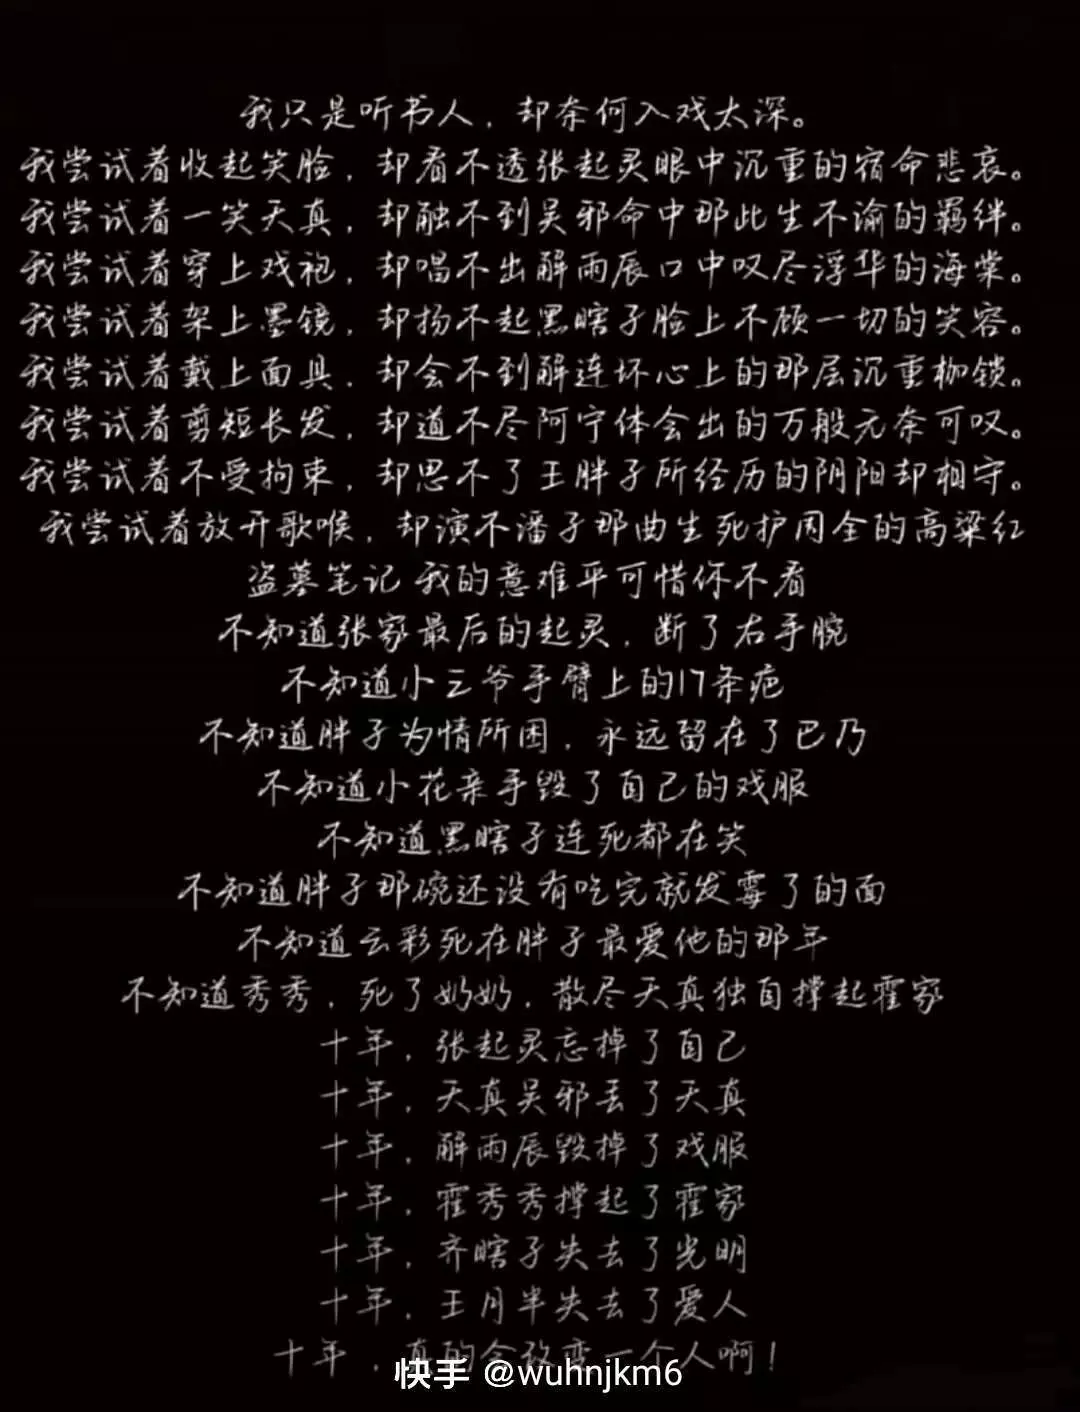 我只是听书人，却奈何入戏太深。
我尝试着收起笑脸，却看不透张起灵眼中沉重的宿命悲哀。
我尝试着一笑天真，却融不到吴邪命中那此生不谕的羁绊。
我尝试着穿上戏袍，却唱不出解雨辰口中叹尽浮华的海棠。
我尝试着架上墨镜，却扬不起黑瞎子脸上不顾一切的笑容。
我尝试着戴上面具，却会不到解连环心上的那层沉重枷锁。
我尝试着剪短长发，却道不尽阿宁体会出的万般无奈可叹。
我尝试着不受拘束，却思不了王胖子所经历的阴阳却相守。
我尝试着放开歌喉，却演不潘子那曲生死护周全的高粱红
盗墓笔记 我的意难平可惜你不看
不知道张家最后的起灵，断了右手腕
不知道小三爷手臂上的17条疤
不知道胖子为情所困，永远留在了巴乃
不知道小花亲手毁了自己的戏服
不知道黑瞎子连死都在笑
不知道胖子那碗还没有吃完就发霉了的面
不知道云彩死在胖子最爱他的那年
不知道秀秀，死了奶奶，散尽天真独自撑起霍家
十年，张起灵忘掉了自己
十年，天真吴邪丢了天真
十年，解雨辰毁掉了戏服
十年，霍秀秀撑起了霍家
十年，齐瞎子失去了光明
十年，王月半失去了爱人
十年，真的会改变一个人啊！
快手 @wuhnjkm6